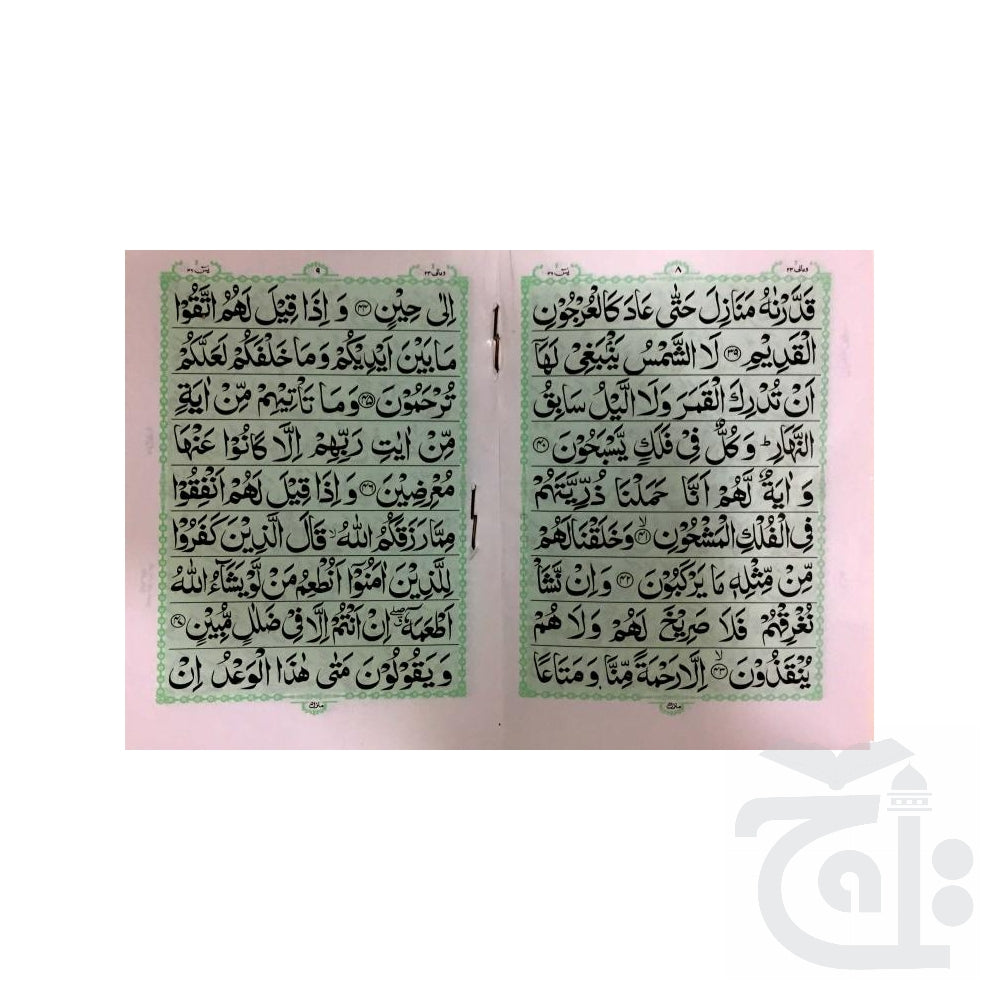 ومالی ٢٣ ٨ یٰسٓ ٣٦
قَدَّرْنٰهُ مَنَازِلَ حَتّٰى عَادَ كَالْعُرْجُوْنِ
الْقَدِيْمِ ۝٣٩ لَا الشَّمْسُ يَنْۢبَغِيْ لَهَاۤ
اَنْ تُدْرِكَ الْقَمَرَ وَلَا الَّيْلُ سَابِقُ
النَّهَارِؕ وَكُلٌّ فِيْ فَلَكٍ يَّسْبَحُوْنَ ۝٤٠
وَ اٰيَةٌ لَّهُمْ اَنَّا حَمَلْنَا ذُرِّيَّتَهُمْ
فِي الْفُلْكِ الْمَشْحُوْنِ ۝٤١ۙ وَخَلَقْنَا لَهُمْ
مِّنْ مِّثْلِهٖ مَا يَرْكَبُوْنَ ۝٤٢ وَاِنْ نَّشَاْ
نُغْرِقْهُمْ فَلَا صَرِيْخَ لَهُمْ وَلَا هُمْ
يُنْقَذُوْنَ ۝٤٣ۙ اِلَّا رَحْمَةً مِّنَّا وَمَتَاعًا
منزل ٥
ومالی ٢٣ ٩ یٰسٓ ٣٦
اِلٰى حِيْنٍ ۝٤٤ وَ اِذَا قِيْلَ لَهُمُ اتَّقُوْا
مَا بَيْنَ اَيْدِيْكُمْ وَمَا خَلْفَكُمْ لَعَلَّكُمْ
تُرْحَمُوْنَ ۝٤٥ وَمَا تَاْتِيْهِمْ مِّنْ اٰيَةٍ
مِّنْ اٰيٰتِ رَبِّهِمْ اِلَّا كَانُوْا عَنْهَا
مُعْرِضِيْنَ ۝٤٦ وَ اِذَا قِيْلَ لَهُمْ اَنْفِقُوْا
مِمَّا رَزَقَكُمُ اللّٰهُۙ قَالَ الَّذِيْنَ كَفَرُوْا
لِلَّذِيْنَ اٰمَنُوْۤا اَنُطْعِمُ مَنْ لَّوْ يَشَآءُ اللّٰهُ
اَطْعَمَهٗۤۖ اِنْ اَنْتُمْ اِلَّا فِيْ ضَلٰلٍ مُّبِيْنٍ ۝٤٧
وَ يَقُوْلُوْنَ مَتٰى هٰذَا الْوَعْدُ اِنْ
منزل ٥